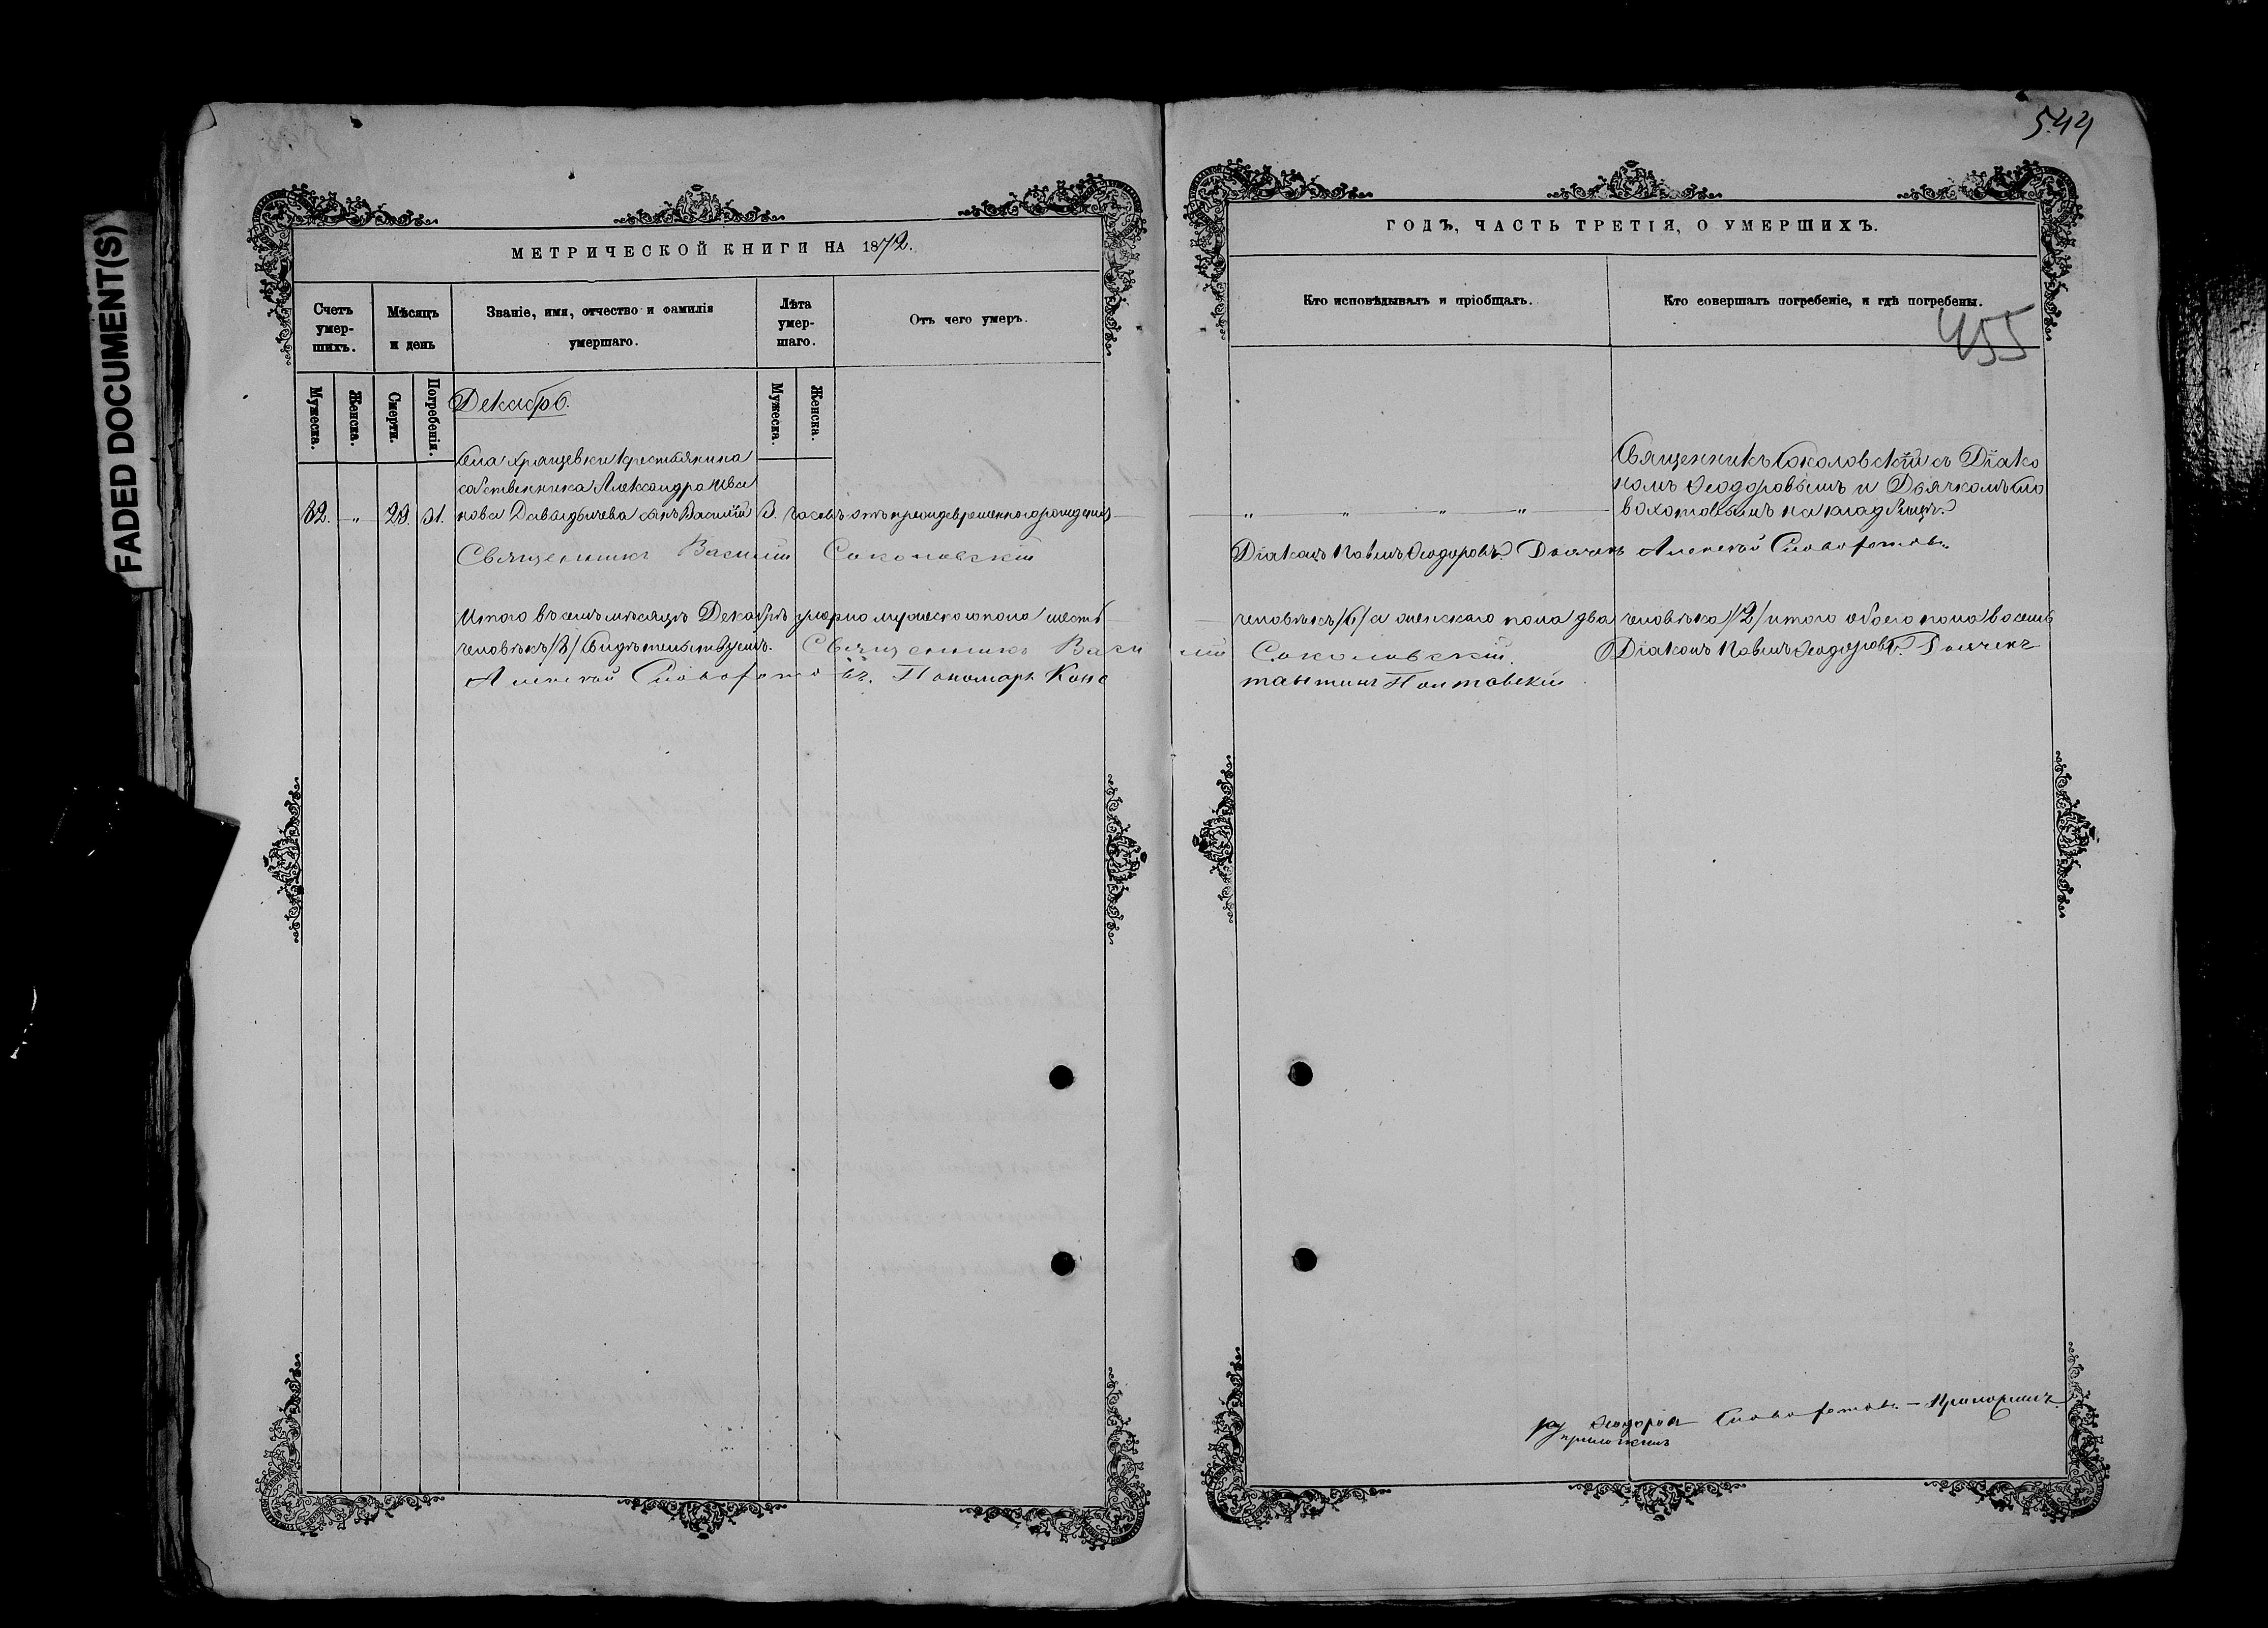 FADED DOCUMENT(S)
544
МЕТРИЧЕСКОЙ КНИГИ НА 1872.
ГОДЪ, ЧАСТЬ ТРЕТІЯ, О УМЕРШИХЪ.
Счетъ умер-шихъ.
Мѣсяцъ и день
Званіе, имя, отчество и фамилія умершаго.
Лѣта умер-шаго.
Отъ чего умеръ.
Кто исповѣдывалъ и пріобщалъ.
Кто совершалъ погребеніе, и гдѣ погребены.
455
Мужеска.
Женска.
Смерти.
Погребенія.
Мужеска.
Женска.
Декабрь.
Села Хрящевки крестьянина
собственника Александра Ива
82. „ 29 31. нова Давыдычева сынъ Василій 3. часовъ отъ преждевременного рожденія
„ „ „ „
Священникъ Соколовскій съ Діако
номъ Ѳеодоровымъ и Дьячкомъ Сло
вохотовымъ на кладбищѣ.
Священникъ Василій Соколовскій
Діаконъ Павелъ Ѳеодоровъ. Дьячекъ Алексѣй Словохотовъ.
Итого въ семъ мѣсяцѣ Декабрѣ умерло мужескаго пола шесть человѣкъ /6/ а женскаго пола два человѣка /2/ итого обоего пола восемь
человѣкъ /8/ Свидѣтельствуемъ. Священникъ Васи лій Соколовскій. Діаконъ Павелъ Ѳеодоровъ. Дьячекъ
Алексѣй Словохотовъ. Пономарь Конс тантинъ Полтавскій
Словохотовъ